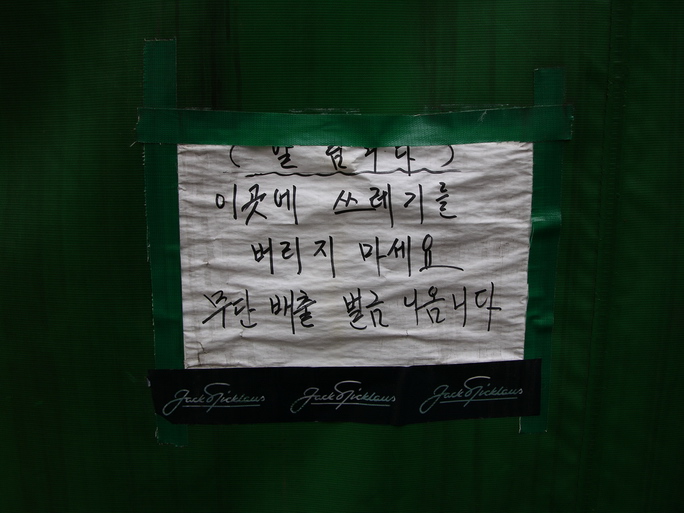 (알립니다)
이곳에 쓰레기를
버리지 마세요
무단 배출 벌금 나옵니다
Jack Nicklaus Jack Nicklaus Jack Nicklaus